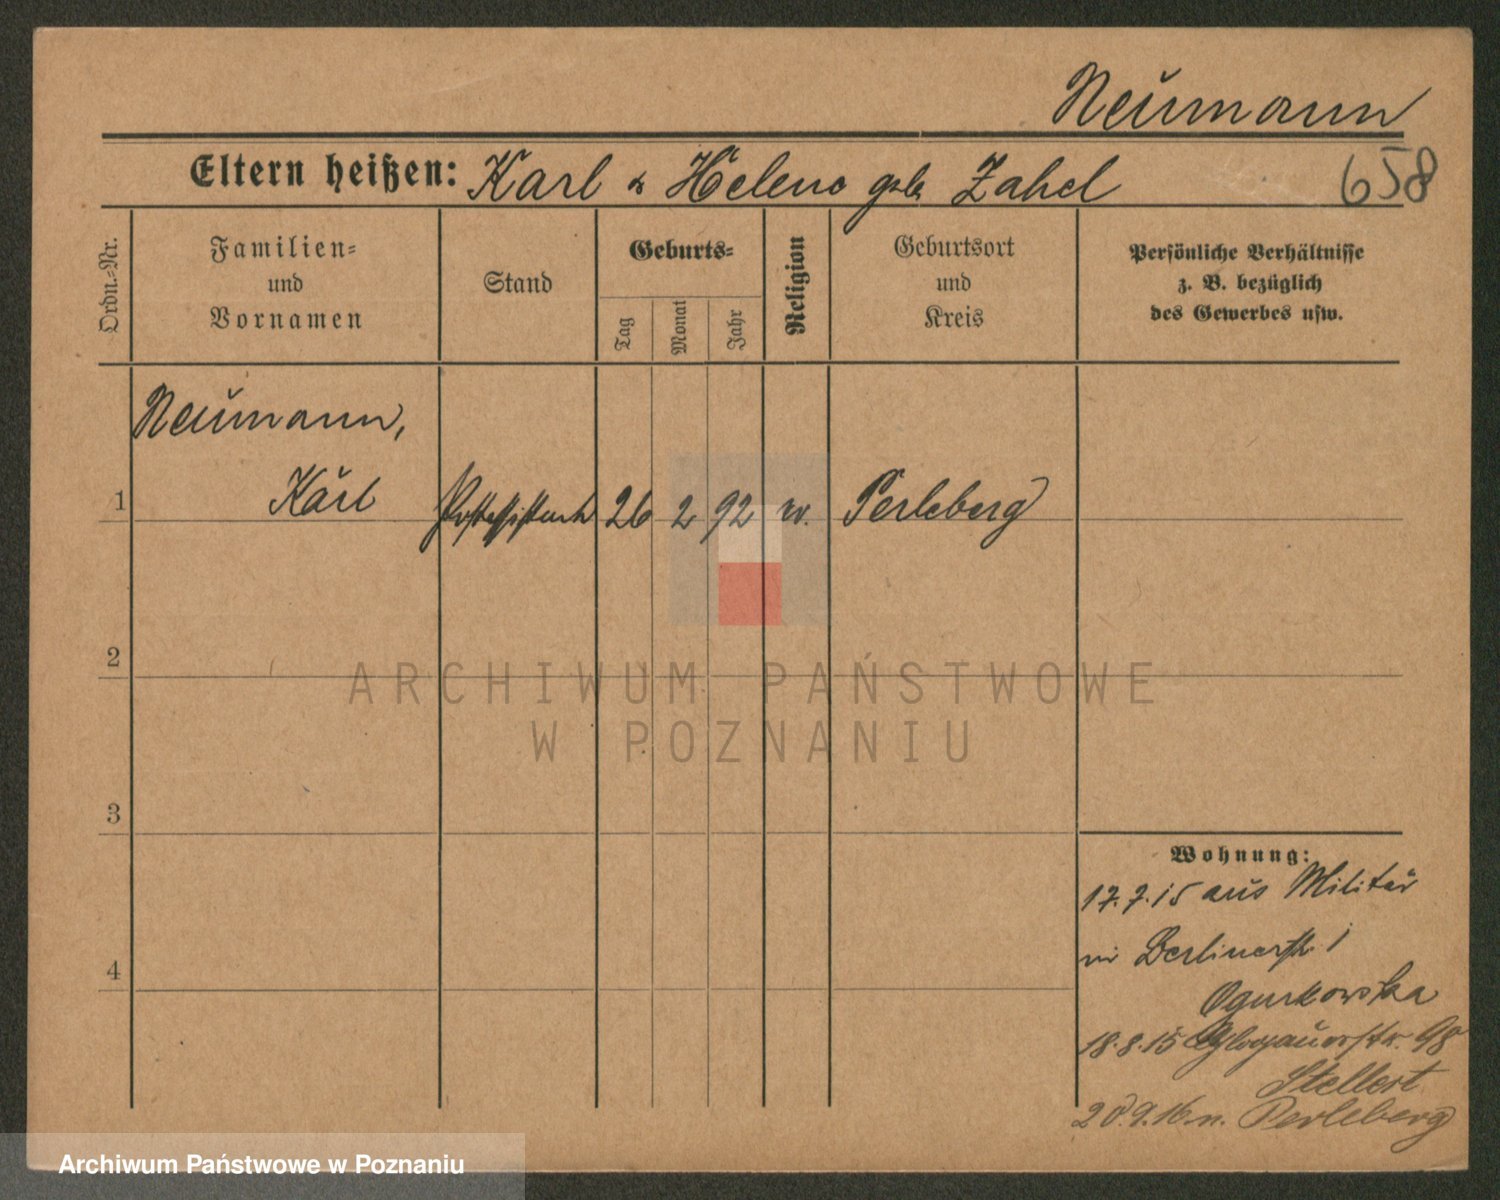 Neumann
Eltern heißen: Karl & Helene geb. Zahel 658
Ordn.-Nr.
Familien-
und
Vornamen
Stand
Geburts-
Tag
Monat
Jahr
Religion
Geburtsort
und
Kreis
Persönliche Verhältnisse
z. B. bezüglich
des Gewerbes usw.
Neumann,
1 Karl Postassistent 26 2 92 ev. Perleberg
2
3
4
Wohnung:
17.7.15 aus Militär
Berlinerstr. 1
Ogurkowska
18.8.15 Glogauerstr. 98
Stellert
20.9.16 n. Perleberg
ARCHIWUM PAŃSTWOWE
W POZNANIU
Archiwum Państwowe w Poznaniu